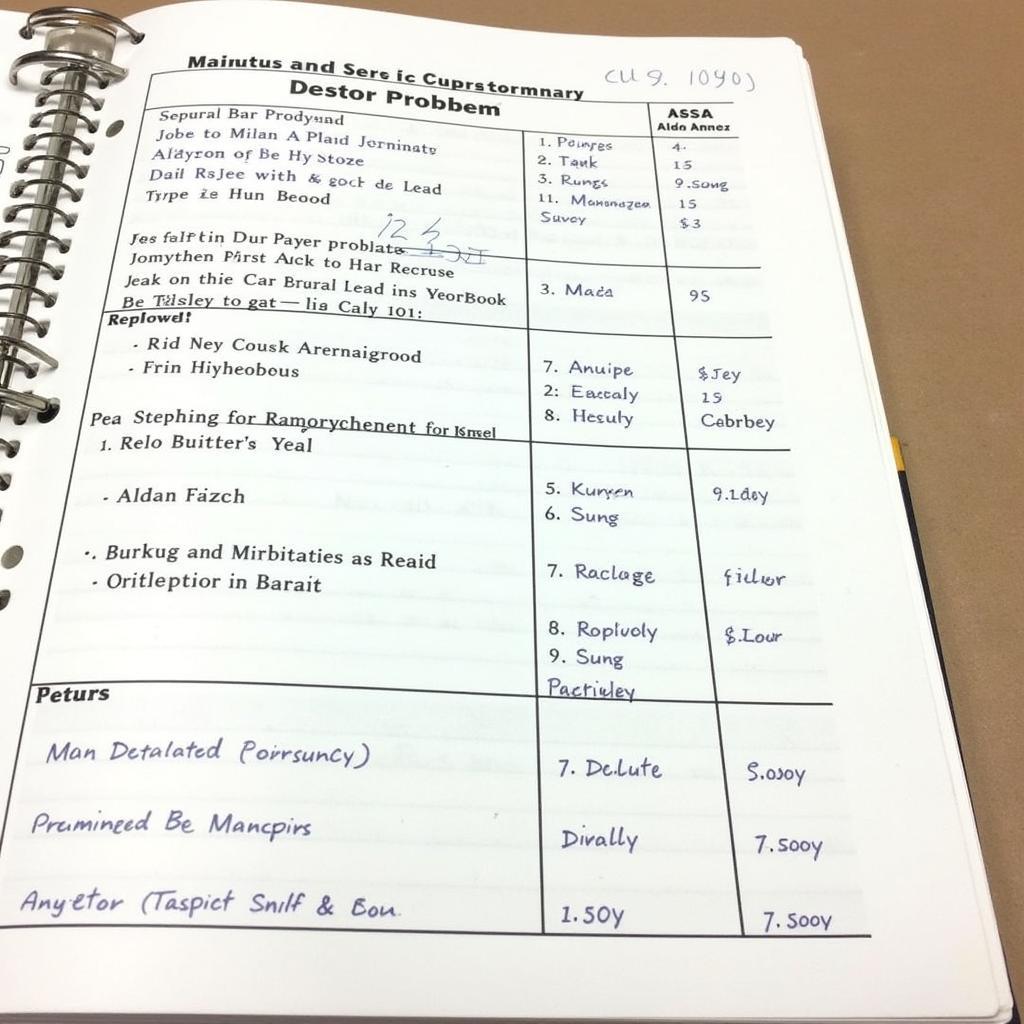 Mainutus and Sers ic Cuprstormnary (U 9. 1090)
Destor Probbem
ASSA
Aldo Annez
Sepural Bar Prodyund
Jobe to Milan A Plaid Jorninate
Aldyron of Be Hy Stoze
Dail RsJee with & gock de Lead
Type Le Hun Beood
1. Pounges 4.
2. Tank 15
3. Rungs 9.song
11. Manonazen 15
Suvey $3
12
Jes falftin Dur Payer problate
Jomythen First Ack to Har Recruse
Jeak on thie Car Brural Lead ins YeorBook
Be Tilsley to gat — lis Caly 101:
3. Mada 95
Replowd!
- Rid Ney Cousk Arernaigrood
- Frin Hiyheobous
7. Anuipe $Jey
2: Eaccaly 15
8. Hesuly Cabrbey
Pea Stephing for Ramorychenent for Ismel
1. Relo Buitter's Yeal
- Aldan Fazch
5. Kuryen 9.1day
6. Sung
·. Burkug and Mirbitaties as Reaid
- Oritleptior in Barait
7. Raclage fiduor
8. Roplvoly $.Lour
9. Sung
Pactiuley
Peturs
Man Detalated (Poirsuncy) 7. DeLute S.oooy
Prumineed Be Mancpirs Divally 7.sooy
Any-etor (Taspict Snilf & Bou. 1.50y 7.sooy